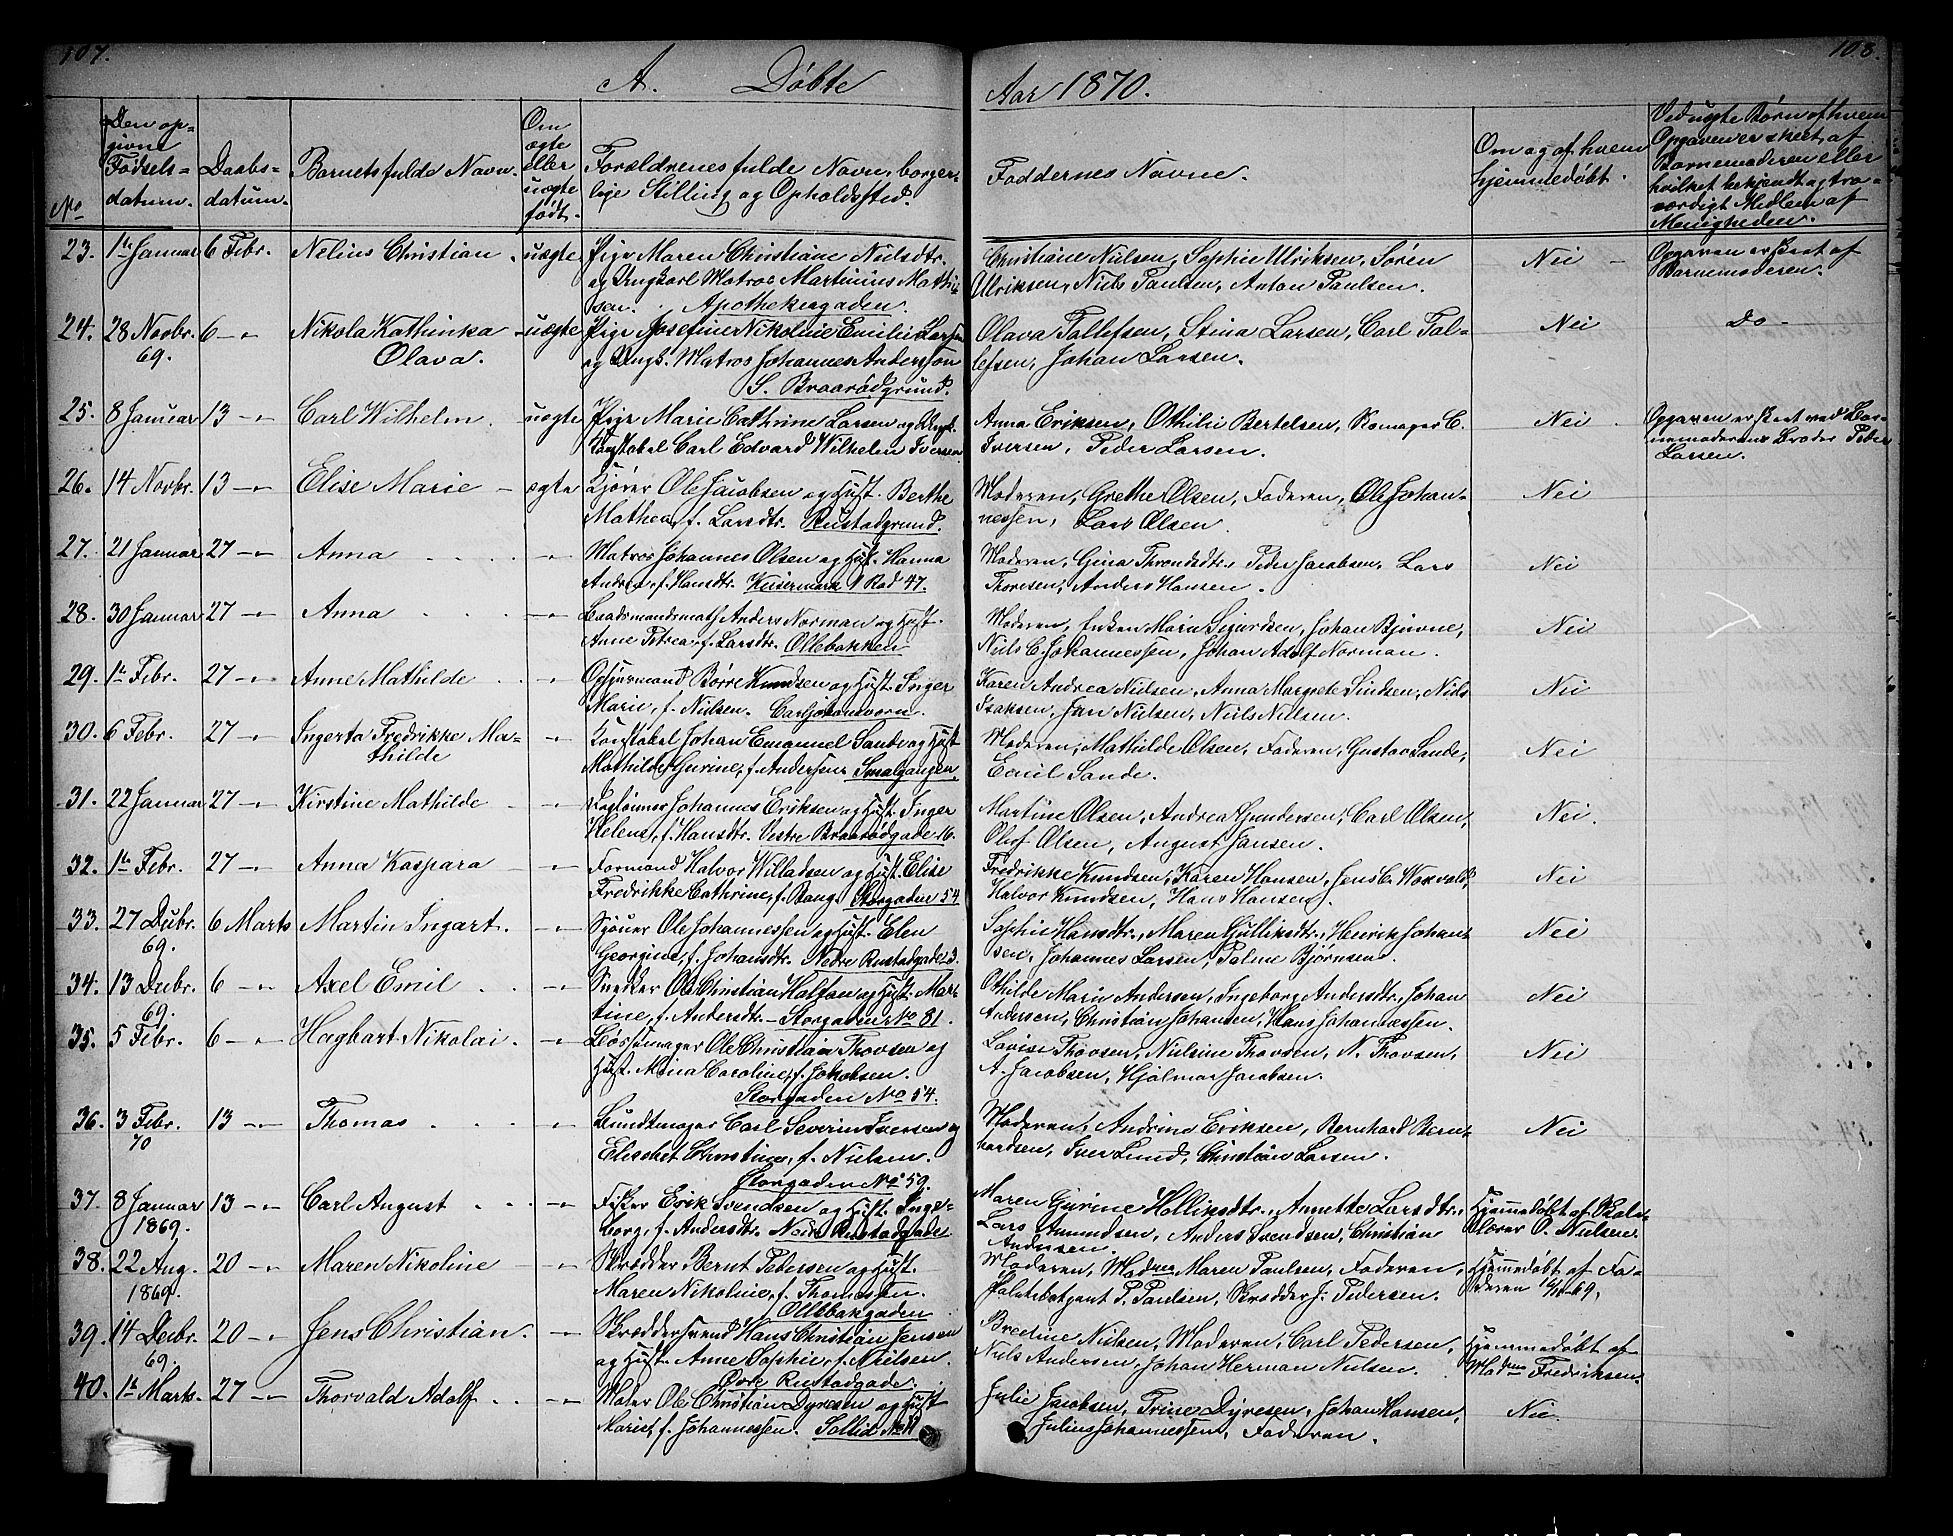 107.
108.
A. Døbte
Aar 1870.
No
Den op=
givne
Fødsels=
datum.
Daabs=
datum.
Barnets fulde Navn.
Om
ægte
eller
uægte
født.
Forældrenes fulde Navn, borger=
lige Stilling og Opholdssted.
Faddernes Navne.
Om og af hvem
hjemmedøbt.
Ved uægte Børn af hvem
Opgaven er skeet, af
Barnemoderen eller
hvilket bekjendt og tro=
værdigt Medlem af
Menigheden.
23. 1ste Januar 6 Febr. Nelius Christian uægte Pige Maren Christiane Nielsdtr.
og Ungkarl Matros Martinius Mathi=
sen. Apothekergaden.
Christiane Nielsen, Sophie Ulriksen, Søren
Ulriksen, Niels Paulsen, Anton Paulsen.
Nei
Opgaven er skeet af
Barnemoderen.
24. 28 Novbr. 69. 6 -"- Nikola Kathinka
Olava.
uægte Pige Josefine Nikoline Emilie Larsen
og Ungk. Matros Johannes Andersson
S. Braarødgrund.
Olava Tallefsen, Stina Larsen, Carl Tal=
lefsen, Johan Larsen.
Nei
Do
25. 8 Januar 13 -"- Carl Wilhelm. uægte Pige Marie Cathrine Larsen og Ungk.
Konstabel Carl Edvard Wilhelm Iversen
Anna Eriksen, Othilie Bertelsen, Skomager C.
Iversen, Peder Larsen.
Nei
Opgaven er skeet ved Bar=
nemoderens Broder Peder
Larsen.
26. 14 Novbr. 13 -"- Elise Marie ægte Kjører Ole Jacobsen og Hust. Berthe
Mathea, f. Larsdtr. Rustadgrund.
Moderen, Grethe Olsen, Faderen, Ole Johan=
nessen, Lars Olsen.
Nei
27. 21 Januar 27 -"- Anna -"- Matros Johannes Olsen og Hust. Hanna
Andrea, f. Hansdtr. Keisermark 1 Rad 47.
Moderen, Gina Throndsdtr. Peder Jacobsen, Lars
Thoresen, Anders Hansen.
Nei
28. 30 Januar 27 -"- Anna -"- Baadsmandsmath Anders Norman og Hust.
Anne Petrea, f. Larsdtr. Ollebakken
Moderen, Enken Marie Sigurdsen, Johan Bjurne,
Niels C. Johannessen, Johan Adolf Norman.
Nei
29. 1ste Febr. 27 -"- Anne Mathilde -"- Opsjurmand Børre Knudsen og Hust. Inger
Marie, f. Nielsen. Carljohansværn.
Karen Andrea Nielsen, Anna Margrete Sindsen, Niels
Isaksen, Jan Nielsen, Niels Nielsen.
Nei
30. 6 Febr. 27 -"- Ingerta Fredrikke Ma=
thilde
-"- Konstabel Johan Emanuel Sande og Hust
Mathilde Gurine, f. Andersen. Smalgangen.
Moderen, Mathilde Olsen, Faderen, Gustav Sande,
Emil Sande.
Nei
31. 22 Januar 27 -"- Kirstine Mathilde -"- Daglønner Johannes Eriksen og Hust. Inger
Helene, f. Hansdtr. Vestre Braarødgade 16.
Martine Olsen, Andrea Gundersen, Carl Olsen,
Oluf Olsen, August Jansen.
Nei.
32. 1ste Febr. 27 -"- Anna Kaspara -"- Formand Halvor Willadsen og Hust. Elise
Fredrikke Cathrine, f. Bang. Storgaden 54
Fredrikke Knudsen, Karen Hansen, Jens C. Woxvald,
Halvor Knudsen, Hans Hansen.
Nei
33. 27 Decbr. 69. 6 Marts Martin Ingart. -"- Sjøuer Ole Johannessen og Hust. Elen
Georgine, f. Johansdtr. Nedre Rustadgade 3.
Sophie Hansdtr., Maren Gulliksdtr., Henrik Johan=
sen, Johannes Larsen, Palme Bjørnsen.
Nei
34. 13 Decbr. 69. 6 -"- Axel Emil -"- Snedker Ole Christian Halfan og Hust. Mar=
tine, f. Andersdtr. - Storgaden No 81.
Othilde Marie Andersen, Ingeborg Andersdtr., Johan
Andersen, Christian Johansen, Hans Johannessen.
Nei
35. 5 Febr. 6 -"- Hagbart Nikolai. -"- Bøssemager Ole Christian Thovsen og
Hust. Mina Caroline, f. Jakobsen.
Storgaden No 54.
Lovise Thovsen, Nielsine Thovsen, N. Thovsen,
A. Jacobsen, Hjalmar Jacobsen.
Nei
36. 3 Febr. 70 13 -"- Thomas -"- Bundtmager Carl Severin Iversen og
Elisabet Christine, f. Nielsen.
Storgaden No 59.
Moderen, Andrine Eriksen, Bernhard Bern=
hardsen, Iver Lund, Christian Larsen.
Nei
37. 8 Januar 1869. 13 -"- Carl August -"- Fisker Erik Svendsen og Hust. Inge=
borg, f. Andersdtr. Nedre Rustadgade
Maren Gurine Holliksdtr., Annette Larsdtr.,
Lars Amundsen, Anders Svendsen, Christian
Andersen.
Hjemmedøbt af Skole=
lærer O. Nielsen.
38. 22 Aug. 1869. 20 -"- Maren Nikoline -"- Skrædder Bernt Petersen og Hust.
Maren Nikoline, f. Thomassen.
Ollebakgaden
Moderen, Madme Maren Paulsen, Faderen,
Politibetjent P. Paulsen, Skrædder J. Pedersen.
Hjemmedøbt af Fa=
deren 16/11 69.
39. 14 Decbr. 69. 20 -"- Jens Christian. -"- Skræddersvend Hans Christian Jensen
og Hust. Anne Sophie, f. Nielsen.
Øvre Rustadgade.
Bredine Nielsen, Moderen, Carl Pedersen,
Niels Andersen, Johan Herman Nielsen.
Hjemmedøbt af
Madme Fredriksen.
40. 1ste Marts. 27 -"- Thorvald Adolf. -"- Maler Ole Christian Dyresen og Hust
Marie, f. Johannessen. Sollid No 11
Julie Jacobsen, Trine Dyresen, Johan Hansen,
Julius Johannessen, Faderen.
Nei.